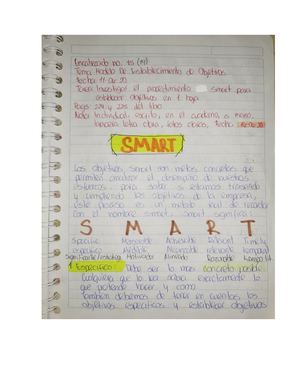 Encabezado no. 15 (14)
Tema Modelo De Establecimiento de Objetivos
Fecha 11-08-20
Tarea Investigar el procedimiento smart para
establecer objetivos en 1 hoja
Pags 224 y 225 del libro
Nota Individual, escrito, en el cuaderno, a mano,
letra clara, Fecha
SMART
Los objetivos smart son metas concretas que
permiten analizar el desempeño de nuestros
esfuerzos para saber si estamos
y cumpliendo los objetivos de la empresa,
este
con el nombre smart, smart significa:
S M A R T
Specific Measurable Achievable Relevant Timely
Medible Alcanzable relevante temporal
Motivador Razonable
1 Específico: Debe ser lo más concreto posible
cualquiera que lo lea sabrá exactamente lo
que pretende hacer y como
También debemos de tener en cuenta los
objetivos específicos y establecer objetivos